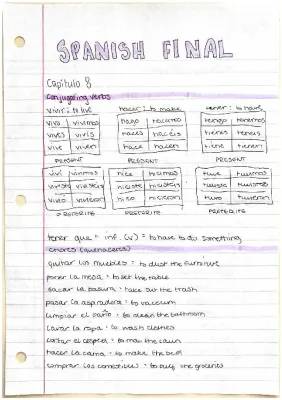 SPANISH FINAL
Capítulo 8
conjugating verbs
vivir: to live hacer: to make tener: to have
vivo vivimos hago hacemos tengo tenemos
vives vivís haces hacéis tienes tenéis
vive viven hace hacen tiene tienen
PRESENT PRESENT PRESENT
viví vivimos hice hicimos tuve tuvimos
viviste vivisteis hiciste hicisteis tuviste
vivió vivieron hizo hicieron tuvo tuvieron
PRETERITE PRETERITE PRETERITE
tener que + inf. (v) = to have to do something
chores (quehaceres)
quitar los muebles - to dust the furniture
poner la mesa - to set the table
sacar la basura - take out the trash
pasar la aspiradora - to vacuum
limpiar el baño - to clean the bathroom
lavar la ropa - to wash clothes
cortar el césped - to mow the lawn
hacer la cama - to make the bed
comprar los comestibles - to buy the groceries